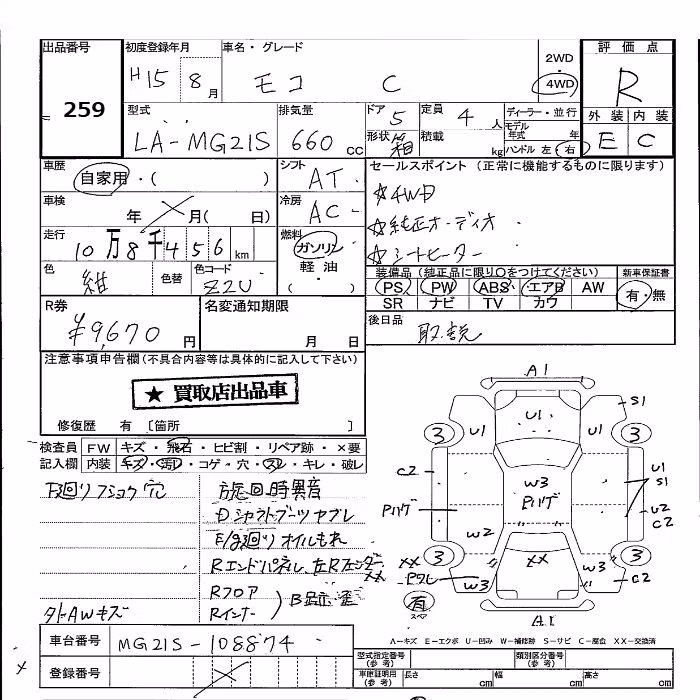 出品番号
259
初度登録年月
H15 8月
車名・グレード
モコ C
2WD
4WD
評価点
R
外装 内装
E C
型式
LA-MG21S
排気量
660 cc
ドア 5
形状 箱
定員 4 人
積載 kg
ディーラー・並行
モデル年式 年
ハンドル 左 右
車歴
自家用・( )
シフト
AT
セールスポイント (正常に機能するものに限ります)
☆4WD
☆純正オーディオ
☆シートヒーター
車検
年 月( 日)
冷房
AC
走行
10万8千456km
燃料
ガソリン
軽・油
・( )
色
紺
色替
色コード
Z2U
装備品 (純正品に限り○をつけてください)
PS PW ABS エアB AW
SR ナビ TV カワ
新車保証書
有・無
R券
¥9,670円
名変通知期限
月 日
後日品
取説
注意事項申告欄(不具合内容等は具体的に記入して下さい)
★ 買取店出品車
修復歴 有 〔箇所 〕
検査員記入欄
FW キズ・飛石・ヒビ割・リペア跡・×要
内装 キズ・汚れ・コゲ・穴・スレ・キレ・破レ
下廻りフショク穴
旋回時異音
Dシャフトブーツヤブレ
E/g廻りオイルもれ
Rエンドパネル、左Rフェンダー××
Rフロア
Rインナー
タトAWキズ
A1
U1
U1
S1
3
3
C2
W3
Pハゲ
Pハゲ
U1
S1
U2
C2
W2
3
3
××
××
PワレW3
W3
C2
有
スペア
A1
A=キズ E=エクボ U=凹み W=補修跡 S=サビ C=腐食 XX=交換済
車台番号
MG21S-108874
登録番号
型式指定番号(参考)
類別区分番号(参考)
車庫証明用(参考)
長さ cm
幅 cm
高さ cm